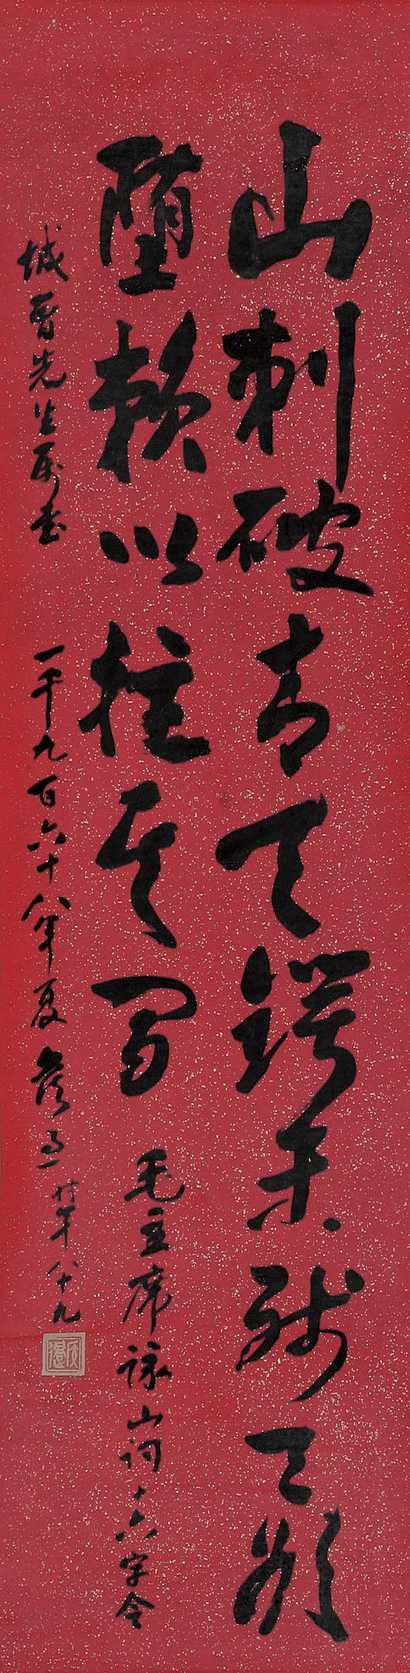 山刺破青天锷未残天欲
堕赖以拄其间
毛主席詠山词十六字令
城曾先生属书
一千九百六十八年夏 時年八十九